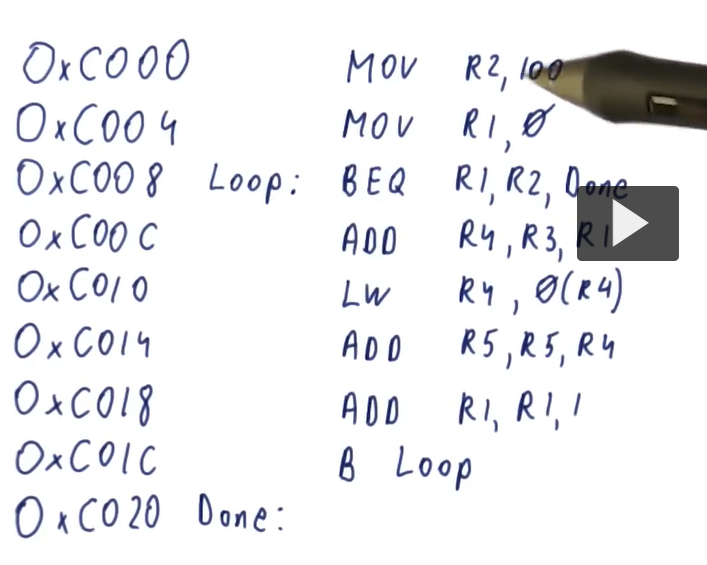 0xC000 MOV R2, 100
0xC004 MOV R1, Ø
0xC008 Loop: BEQ R1, R2, Done
0xC00C ADD R4, R3, R1
0xC010 LW R4, Ø(R4)
0xC014 ADD R5, R5, R4
0xC018 ADD R1, R1, 1
0xC01C B Loop
0xC020 Done: